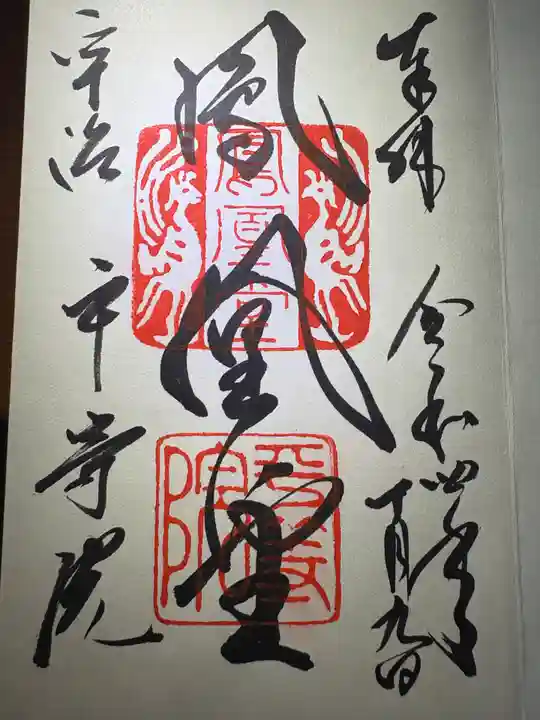 奉拝
令和四年
十月九日
鳳凰堂
鳳凰堂
平等院
宇治
平等院